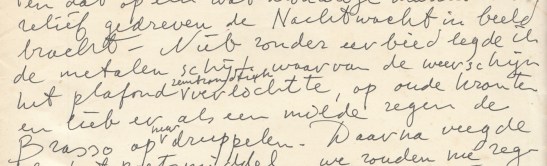 en dat op een
reliëf gedreven de Nachtwacht in beeld
bracht – Niet zonder eerbied legde ik
de metalen schijf, waarvan de weerschijn
het plafond verlichtte, op oude kranten
en liet er als een milde regen de
Brasso op neer druppelen. Daarna veegde
we zouden me